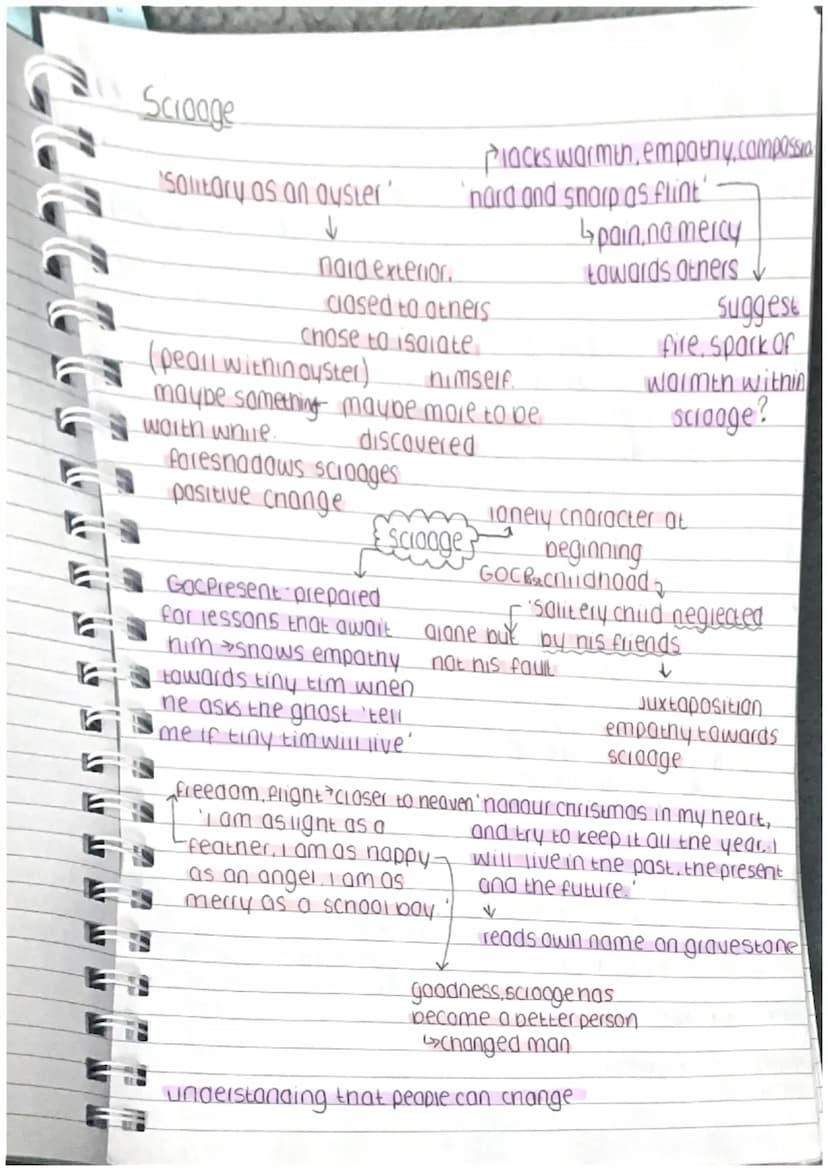 Scrooge
'solitary as an oyster'
↓
hard exterior.
closed to others
chose to isolate
himself.
maybe more to be
discovered
(pearl within oyster)
maybe something
worth while.
foreshadows scrooges
positive change
lacks warmth, empathy, compassio
'hard and sharp as flint'
↳ pain, no mercy
towards others
suggest
fire, spark of
warmth within
scrooge?
scrooge
lonely character at
beginning
GOCP → childhood
'solitery child neglected
by his friends
alone but
not his fault
↓
juxtaposition
empathy towards
scrooge
GOCPresent - prepared
for lessons that await
him → shows empathy
towards tiny tim when
he asks the ghost 'tell
me if tiny tim will live'
freedom, flight → closer to heaven
'i am as light as a
feather, i am as happy
as an angel, i am as
merry as a school boy.'
goodness, scrooge has
become a better person
↳ changed man
'honour christmas in my heart,
and try to keep it all the year. i
will live in the past, the present
and the future.'
↓
reads own name on gravestone
understanding that people can change